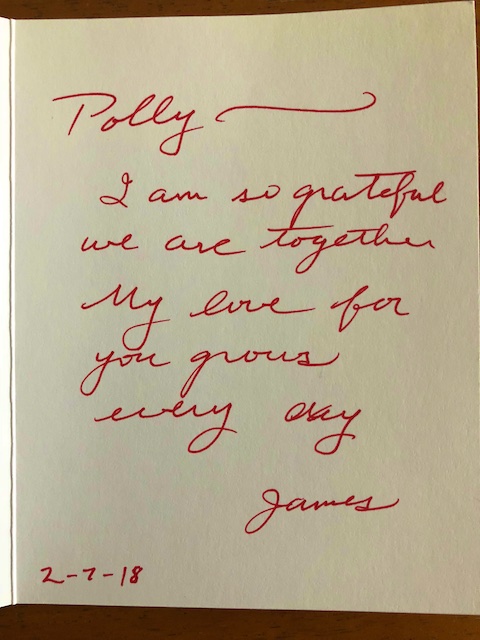 Polly
I am so grateful
we are together
My love for
you grows
every day
James
2-7-18